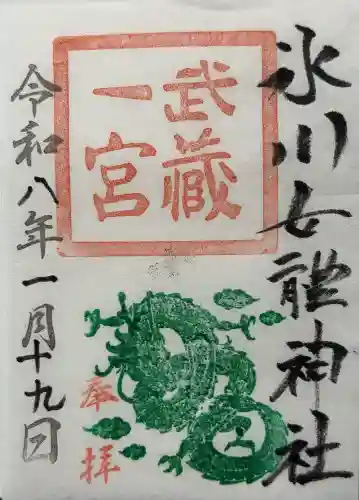 氷川女體神社
武蔵
一宮
奉拝
令和八年一月十九日